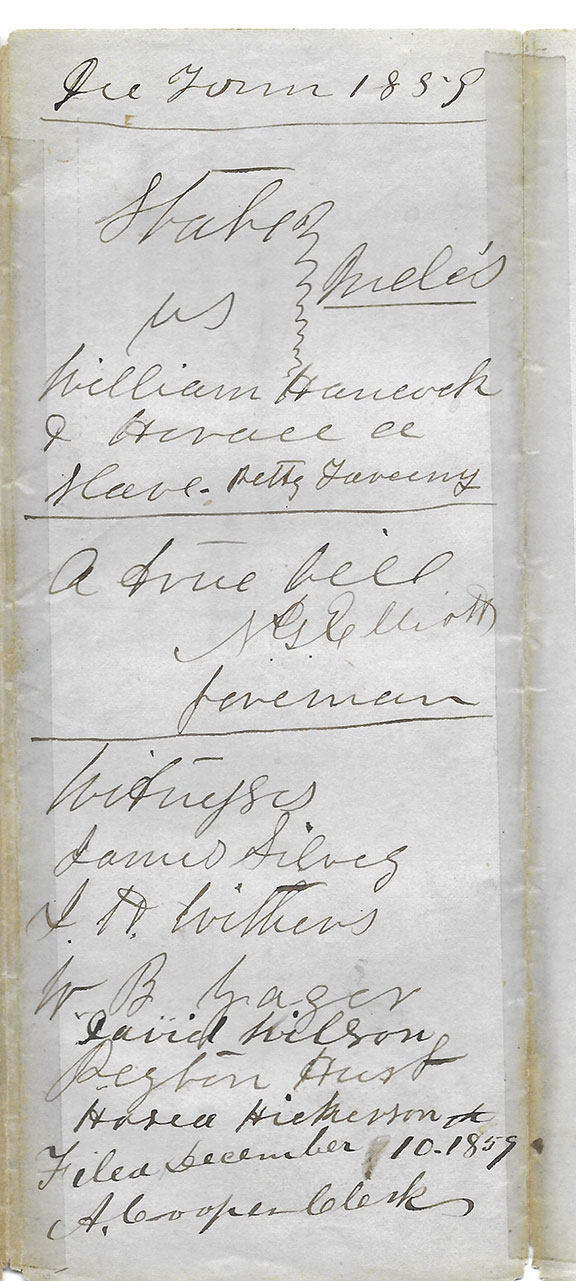 Dec Term 1859
State
vs
Indc's
William Hancock
& Horace a
slave. Petty Larceny
A true bill
N G Elliott
foreman
Witnesses
James Silvey
J H Withers
W. B Yager
David Wilson
Peyton Hurst
Hosea Hickerson
Filed December 10. 1859
A. Cooper Clerk